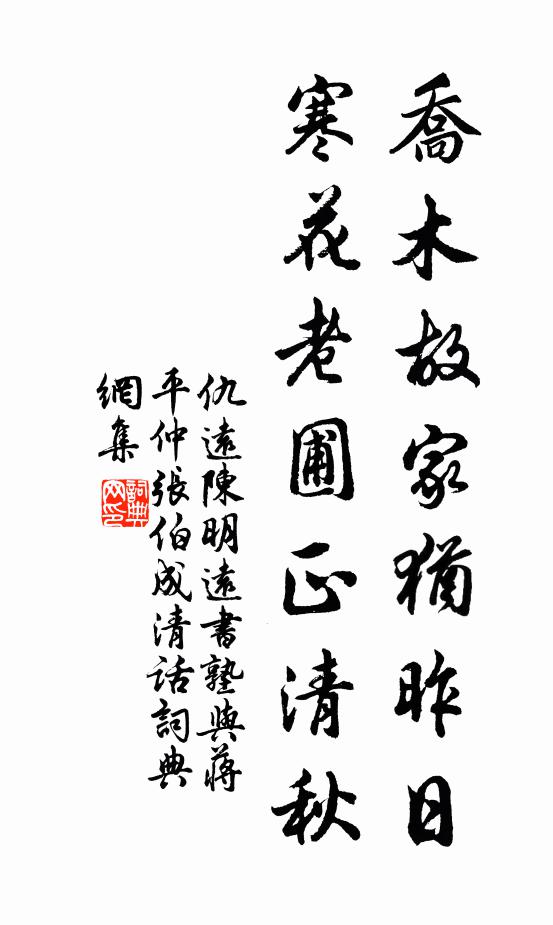 喬木故家猶昨日
寒花老圃正清秋
仇遠陳明遠書塾與蔣
平仲張伯成清話詞典
網集
詞典
网印